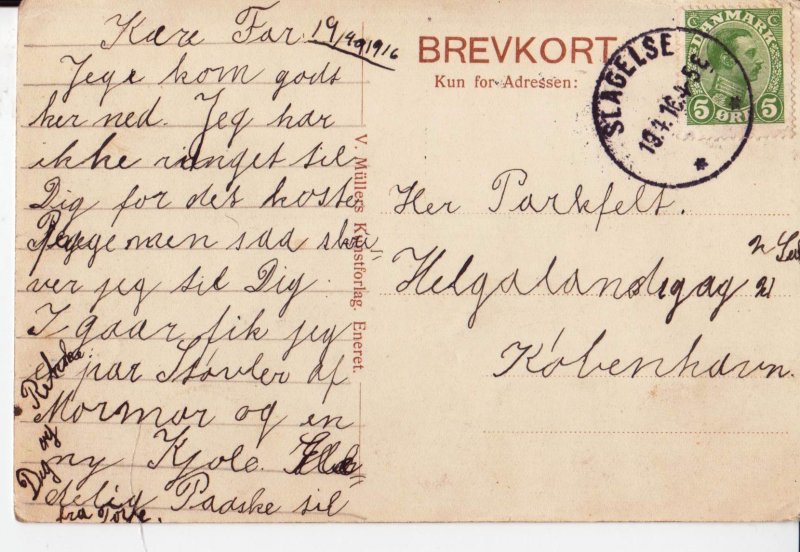 Kære Far. 19/4 1916
Jeg kom godt
her ned. Jeg har
ikke ringet til
Dig for det koster
Penge men saa skri
ver jeg til Dig.
I gaar fik jeg
et par Støvler af
Mormor og en
ny Kjole.
delig Paaske til
Dig og
fra Tove.
V. Müllers Kunstforlag. Eneret.
BREVKORT
Kun for Adressen:
SLAGELSE
19.4.16.4-5E
DANMARK
5 ØRE 5
Her Parkfelt.
Helgalandsgag 21
København.